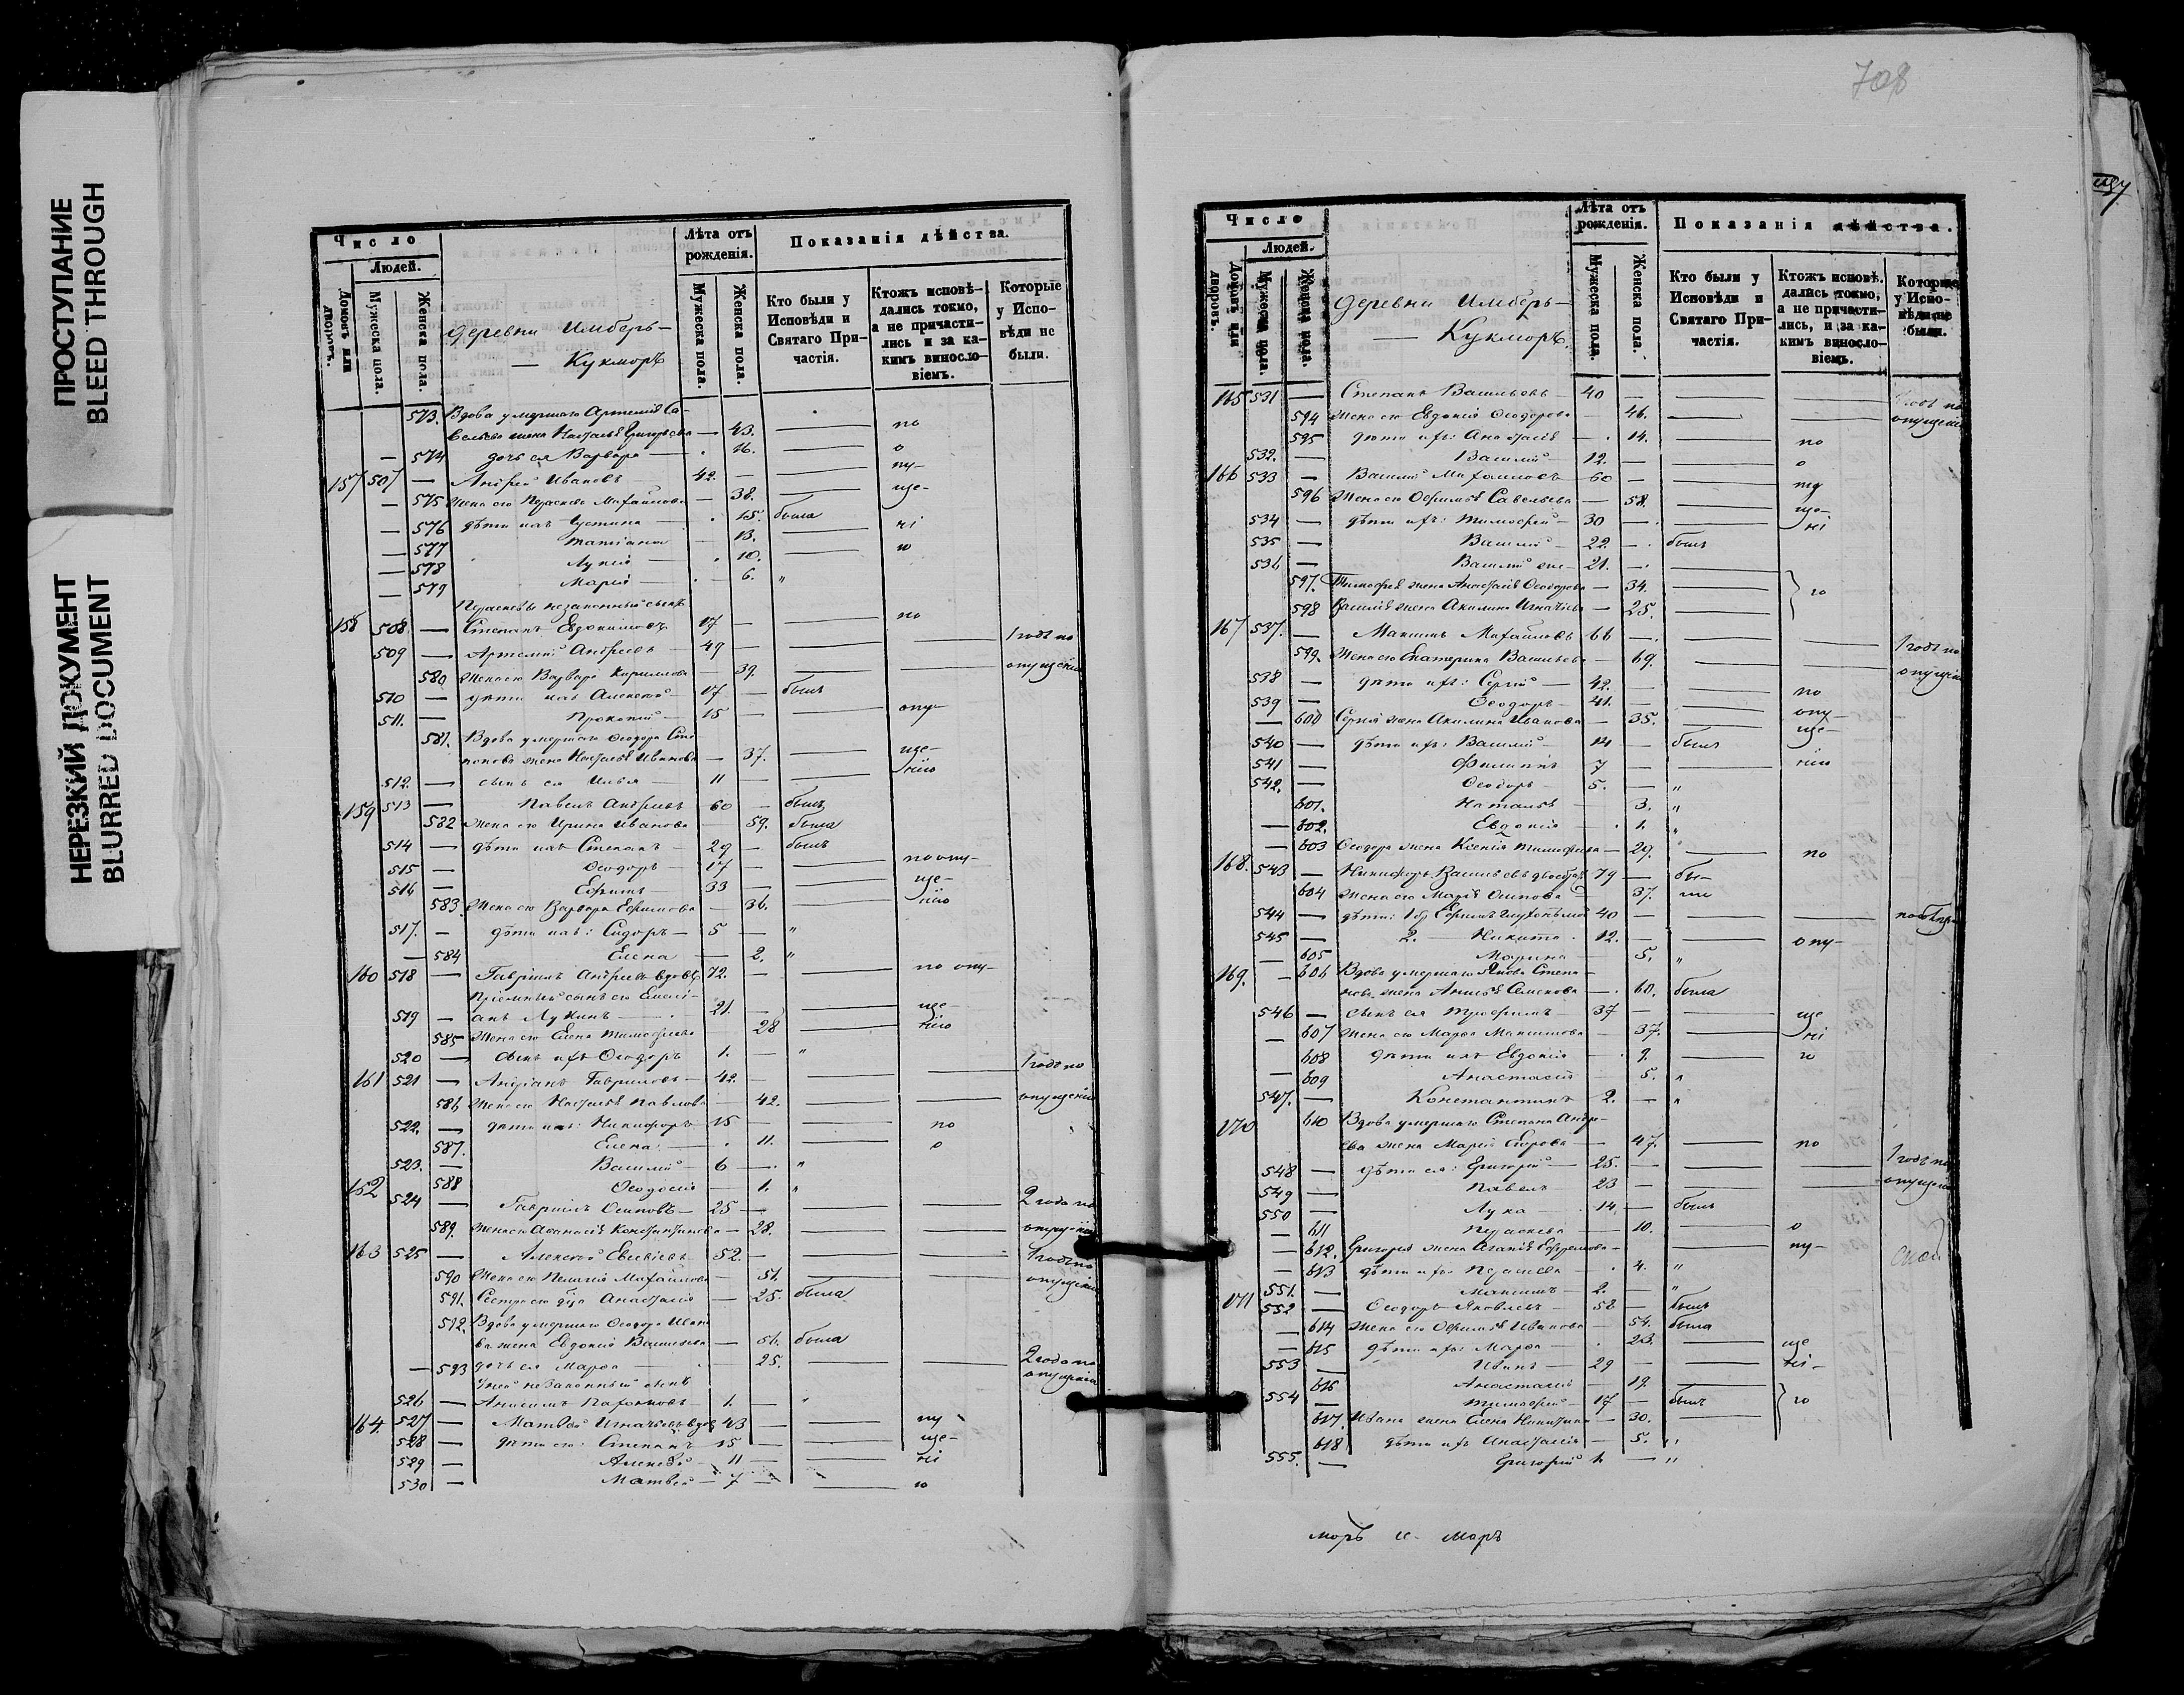 ПРОСТУПАНИЕ
BLEED THROUGH
НЕРЕЗКИЙ ДОКУМЕНТ
BLURRED DOCUMENT
Число
Людей.
Домовъ или дворовъ.
Мужеска пола.
Женска пола.
деревни Имберь-
— Кукморъ
Лѣта отъ рожденія.
Мужеска пола.
Женска пола.
Показанія дѣйства.
Кто были у Исповѣди и Святаго Причастія.
Ктожъ исповѣдались токмо, а не причастились и за какимъ винословіемъ.
Которые у Исповѣди не были.
573. Вдова умершаго Артемія Са-
вельева жена Наталья Григорьева — 43. — по
— 574 дочь ея Варвара — 16. — о
157 507 — Андрей Ивановъ — 42. — — пу-
— 575 Жена его Параскева Михайлова — 38. — ще-
— 576 дѣти ихъ Устина — 15. была
— 577 Татіана — 13. — ні
— 578 Лукія — 10. — ю
— 579 Марія — 6. "
Параскевы незаконный сынъ
158 508. — Степанъ Евдокимовъ 17 — — по
509 — Артемій Андреевъ — 49 — — — 1 годъ по
580 Жена его Варвара Кириллова — 39. — — опущенію
510 — дѣти ихъ Алексей — 17 — былъ
511. — Прокопій — 15 — — опу-
581. Вдова умершаго Ѳеодора Сте-
панова жена Наталья Иванова — 37. — ще-
512. — сынъ ея Илья — 11 — — нію
159 513 — Павелъ Андреевъ 60 — былъ
582 Жена его Ирина Иванова — 59. была
514 — дѣти ихъ Степанъ — 29 — былъ
515 — Ѳеодоръ — 17 — — по опу-
516 — Ефимъ — 33 — — ще-
583. Жена его Варвара Ефимова — 36. — нію
517. — дѣти ихъ: Сидоръ — 5 — "
— 584 Елена — 2. "
160 518 — Гавріилъ Андреевъ вдовъ 72. — — по опу-
Пріемный сынъ его Емелі-
519 — анъ Лукинъ — 21. — — ще-
585 Жена его Елена Тимофеева 28 — нію
520 — сынъ ихъ Ѳеодоръ 1. — "
161 521 — Андріанъ Гавриловъ — 42. — — — 1 годъ по
586 Жена его Наталья Павлова — 42. — — опущенію
522. — дѣти ихъ: Никифоръ 15 — — по
587. Елена — 11. — о
523. — Василій — 6 — "
588 Ѳеодосія — 1. "
162 524 — Гавріилъ Осиповъ — 25 — — — 2 года по
589. Жена его Аѳанасія Константинова — 28. — — опущенію
163 525 — Алексей Евсевіевъ 52. — — — 1 годъ по
590 Жена его Пелагія Михайлова — 51. — — опущенію
591. Сестра его дѣва Анастасія — 25. была
592. Вдова умершаго Ѳеодора Ивано-
ва жена Евдокія Васильева — 56. была
— 593 дочь ея Марѳа — 25. — — 2 года по опущенію
У ней незаконный сынъ
526 — Анисимъ — 1. — "
164. 527 — Матвей Игнатьевъ вдовъ 43 — — пу
528 — дѣти его: Степанъ 15 — — ще-
529 — Алексей — 11 — — ні
530 — Матвей — 7 — — ю
708
Число
Людей.
Домовъ или дворовъ.
Мужеска пола.
Женска пола.
деревни Имберь-
— Кукморъ.
Лѣта отъ рожденія.
Мужеска пола.
Женска пола.
Показанія дѣйства.
Кто были у Исповѣди и Святаго Причастія.
Ктожъ исповѣдались токмо, а не причастились, и за какимъ винословіемъ.
Которые у Исповѣди не были.
165 531 — Степанъ Васильевъ — 40 — — — 1 годъ по
594 Жена его Евдокія Ѳеодорова — 46. — — опущенію
595 дѣти ихъ: Анастасія — 14. — по
532. — Василій — 12. — — о
166 533 — Василій Михайловъ — 60 — — пу
596 Жена его Евфимья Савельева — 58. — ще-
534 — дѣти ихъ: Тимофей — 30 — — ні
535 — Василій — 22. — былъ
536 — Василій — 21. — —
597. Тимофея жена Анастасія Ѳеодорова — 34. — ю
598 Василія жена Акилина Игнатьева — 25. —
167 537. — Максимъ Михайловъ 66 — — — 1 годъ по
599. Жена его Екатерина Васильева — 69. — — опущенію
538 — дѣти ихъ: Сергій — 42. — — по
539 — Ѳеодоръ — 41. — — опу-
— 600 Сергія жена Акилина Иванова — 35. — ще-
540 — дѣти ихъ: Василій — 14 — былъ
541 — Филиппъ 7 — — нію
542. — Ѳеодоръ — 5. — "
601. Наталья — 3. "
— 602. Евдокія — 1. "
— 603 Ѳеодора жена Ксенія Тимофеева — 29. — по
168. 543 — Никифоръ Васильевъ 79 — бы-
604 Жена его Марія Осипова 37. ли
544 — дѣти: Ефимъ 40 — — —
545 — 2. — Никита 12. — — опу-
— 605 Марина — 5. "
169. — 606 Вдова умершаго Якова Степа-
нова жена Анисья Семенова — 60. была
546 — сынъ ея Трофимъ — 37 — — ще
— 607 Жена его Марѳа Максимова — 37. — ні
608 дѣти ихъ Евдокія — 9. — ю
— 609 Анастасія — 5. "
547. — Константинъ — 2. — "
170 610 Вдова умершаго Степана Андре-
ева жена Марія Егорова — 47. — по
548 — дѣти ея: Григорій — 25. — — — 1 годъ по
549 — Павелъ — 23 — — — опущенію
550 — Лука — 14. — былъ
— 611 Параскева — 10. — о
— 612. Григорія жена Агапія Ефремова — — пу-
— 613 дѣти ихъ Параскева — 4. "
551. — Максимъ — 2. — "
171 552 — Ѳеодоръ Яковлевъ — 58 — былъ
— 614 Жена его Евфимья Иванова — 54. была
— 615 дѣти ихъ Марѳа — 23. — ще
553 — Иванъ — 29 — — ні-
616 Анастасія — 19. —
554 — Тимофей — 17 — былъ ю
617. Ивана жена Елена Никитина — 30. —
618 дѣти ихъ Анастасія — 5. "
555. — Григорій 1. — "
моръ и моръ